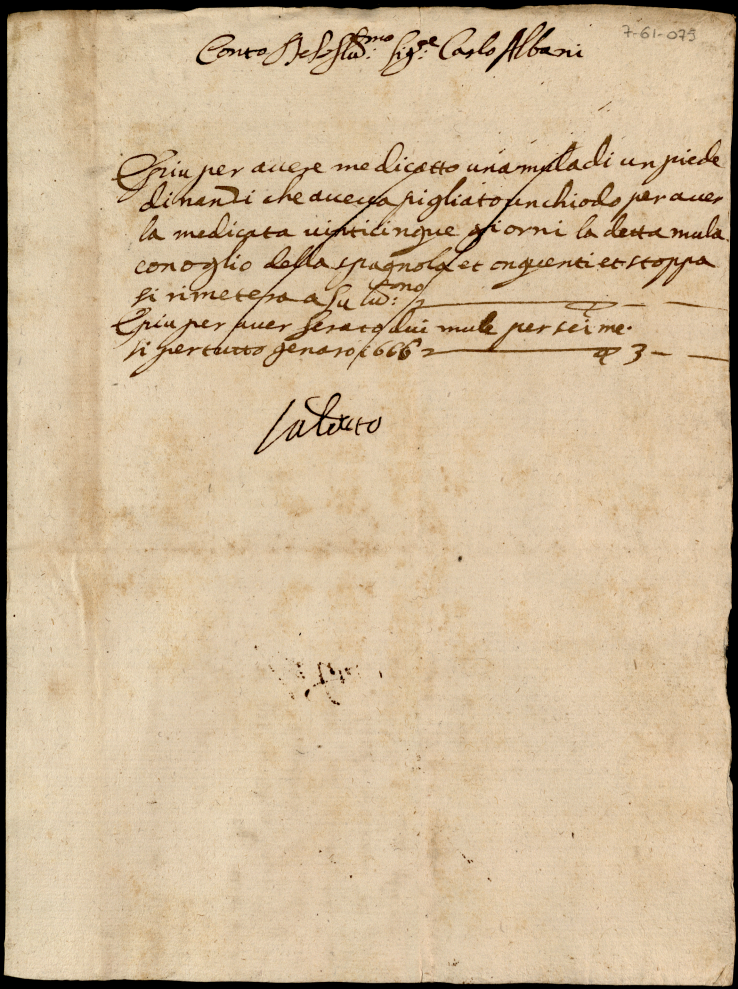 7-61-075
Conto Del Illu.mo Sig.re Carlo Albani
E piu per avere medicatto una mula di un piede
di nanzi che aveva pigliato un chiodo per aver
la medicata vinticinque giorni la detta mula
con oglio della spagnola et onguenti et stoppa
si rimetera a Su Illu.mo
E piu per aver ferato dui mule per sei me-
si per tutto genaro 1666
3 —